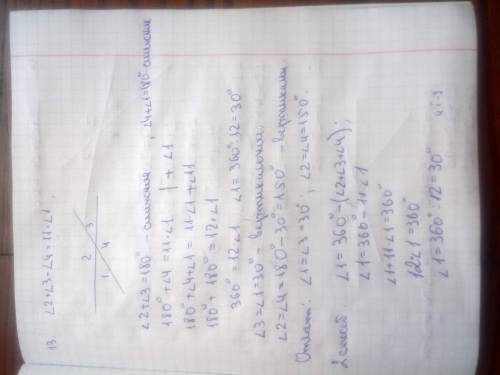 13. ∠2+∠3+∠4=11·∠1.
2
3
1
4
∠2+∠3=180° - смежные , ∠4+∠1=180°-смежные
180°+∠4=11·∠1 | +∠1
180°+∠4+∠1=11·∠1+∠1
180°+180°=12·∠1
360°=12·∠1 ∠1=360°:12=30°
∠3=∠1=30° - вертикальные.
∠2=∠4=180°-30°=150° - вертикальные
Ответ: ∠1=∠3=30°, ∠2=∠4=150°.
2 способ. ∠1=360°-(∠2+∠3+∠4);
∠1=360°-11·∠1
∠1+11∠1=360°
12∠1=360°
∠1=360°:12=30°